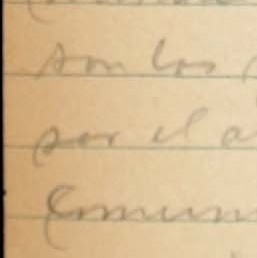 son los
por el a
Comun